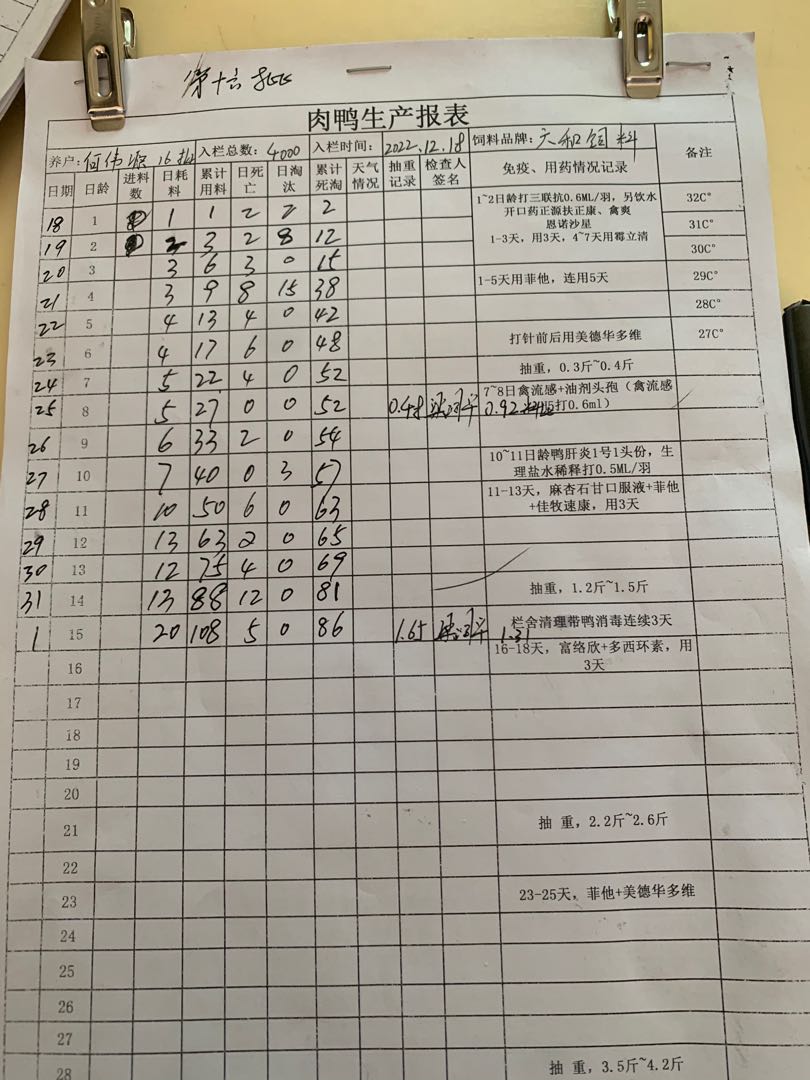 第十六批
肉鸭生产报表
养户: 何伟 16批 入栏总数: 4000 入栏时间: 2022.12.18 饲料品牌: 六和饲料 备注
日期 日龄 进料数 日耗料 累计用料 日死亡 日淘汰 累计死淘 天气情况 抽重记录 检查人签名 免疫、用药情况记录
18 1 1 1 2 2 2 1~2日龄打三联抗0.6ML/羽，另饮水开口药正源扶正康、禽爽 32C°
19 2 2 3 2 8 12 恩诺沙星 31C°
1-3天，用3天，4~7天用霉立清 30C°
20 3 3 6 3 0 15
21 4 3 9 8 15 38 1-5天用菲他，连用5天 29C°
22 5 4 13 4 0 42 28C°
23 6 4 17 6 0 48 打针前后用美德华多维 27C°
24 7 5 22 4 0 52 抽重，0.3斤~0.4斤
25 8 5 27 0 0 52 0.48 0.92 7~8日禽流感+油剂头孢（禽流感 打0.6ml）
26 9 6 33 2 0 54
27 10 7 40 0 3 57 10~11日龄鸭肝炎1号1头份，生理盐水稀释打0.5ML/羽
28 11 10 50 6 0 63 11-13天，麻杏石甘口服液+菲他+佳牧速康，用3天
29 12 13 63 2 0 65
30 13 12 75 4 0 69
31 14 13 88 12 0 81 抽重，1.2斤~1.5斤
1 15 20 108 5 0 86 1.65 1.31 栏舍清理带鸭消毒连续3天
16 16-18天，富络欣+多西环素，用3天
17
18
19
20
21 抽 重，2.2斤~2.6斤
22
23 23-25天，菲他+美德华多维
24
25
26
27
28 抽 重，3.5斤~4.2斤